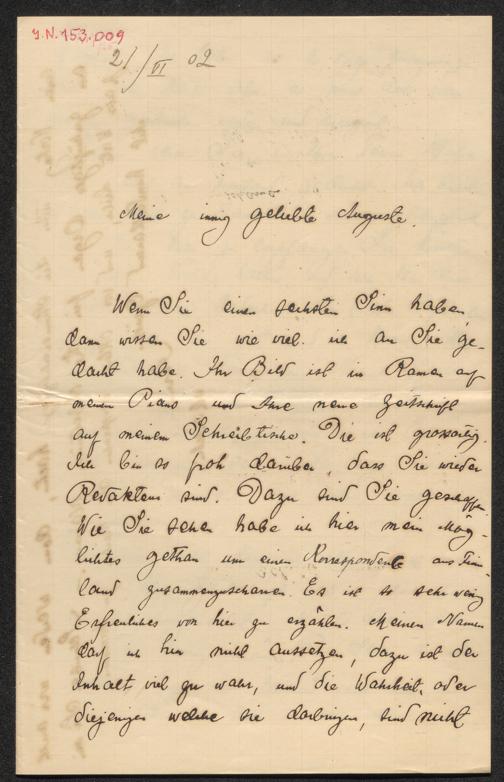 J.N. 153.009
21/VI 02
Meine innig geliebte Auguste.
Wenn Sie einen sechsten Sinn haben,
dann wissen Sie wie viel ich an Sie ge-
dacht habe. Ihr Bild ist in Ramen auf
meinem Piano und Ihre neue Zeitschrift
auf meinem Schreibtische. Die ist grossartig.
Ich bin so froh darüber, dass Sie wieder
Redakteur sind. Dazu sind Sie geschaffen.
Wie Sie sehen habe ich hier mein Mög-
lichtes gethan um einen Korrespondente aus Finn-
land zusammenzuscharren. Es ist so sehr wenig
Erfreuliches von hier zu erzählen. Meinen Namen
darf ich hier nicht aussetzen, dazu ist der
Inhalt viel zu wahr, und die Wahrheit, oder
diejenigen welche sie darbringen, sind nicht